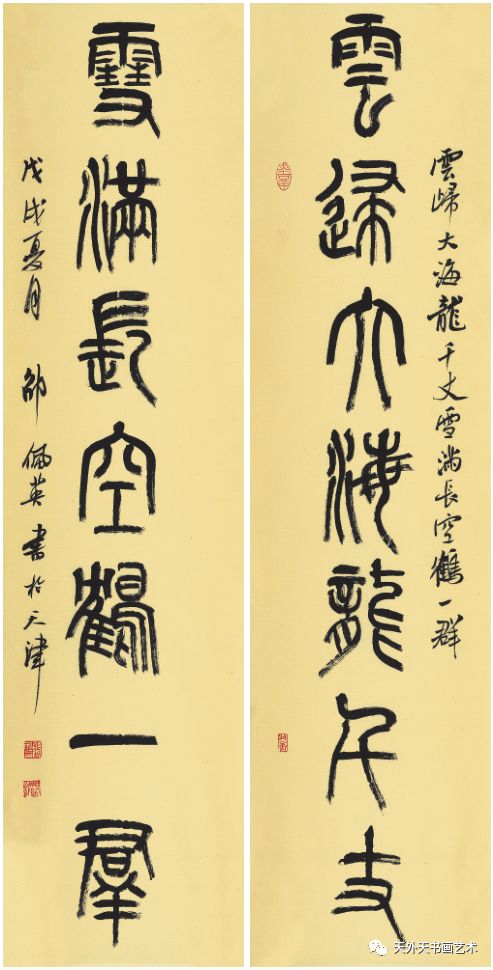 雲歸大海龍千丈雪滿長空鶴一群
雲歸大海龍千丈
雪滿長空鶴一羣
戊戌夏月 邵佩英書於天津
天外天书画艺术